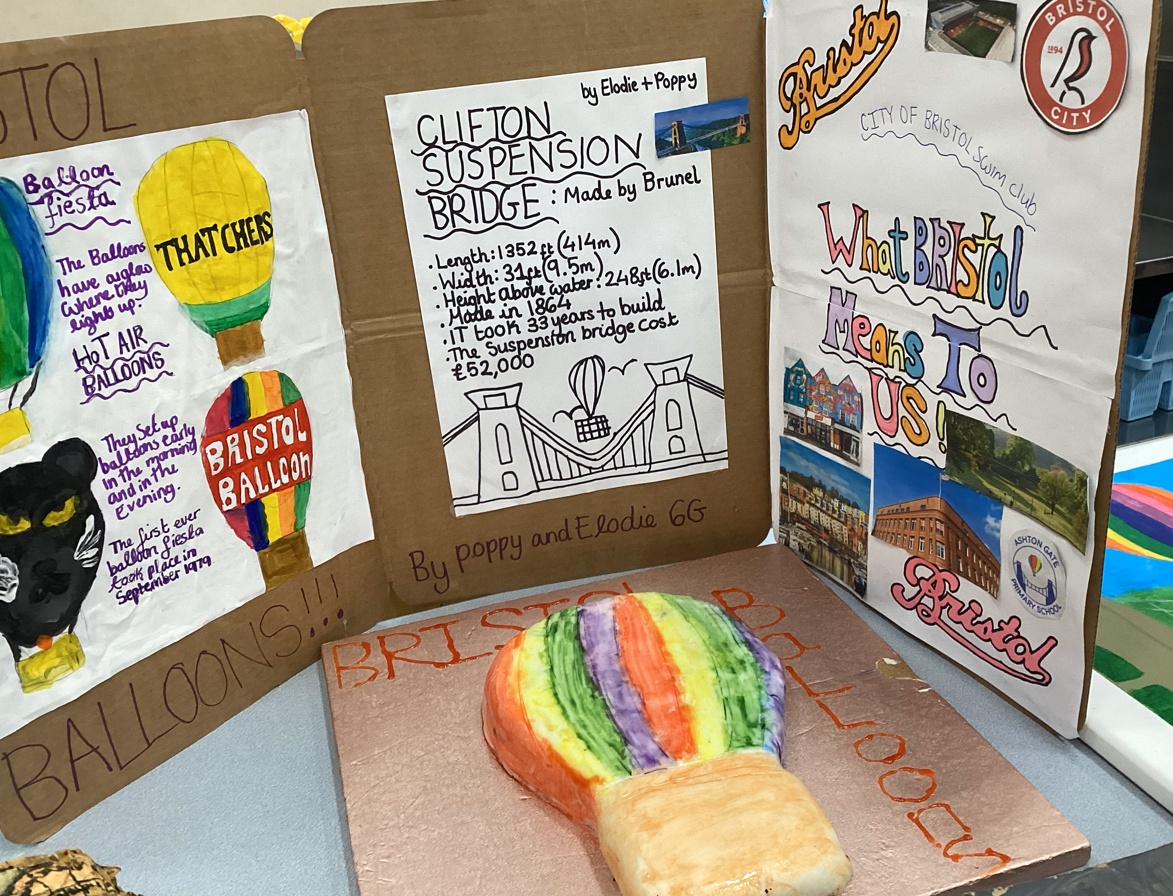 STOL
Balloon
fiesta
The Balloons
have a glow
where they
light up:
HOT AIR
BALLOONS
They set up
balloons early
in the morning
and in the
Evening.
The first ever
balloon fiesta
took place in
September 1979.
THATCHERS
BRISTOL
BALLOON
BALLOONS!!!
by Elodie + Poppy
CLIFTON
SUSPENSION
BRIDGE : Made by Brunel
• Length: 1352 ft (414m)
• Width: 31ft (9.5m)
• Height above water: 248ft (6.1m)
• Made in 1864
• IT took 33 years to build
• The Suspension bridge cost
£52,000
By poppy and Elodie 6G
Bristol
BRISTOL
1894
CITY
CITY OF BRISTOL SWIM club
What BRISTOL
Means To
US!
ASHTON GATE
PRIMARY SCHOOL
Bristol
BRISTOL BALLOON